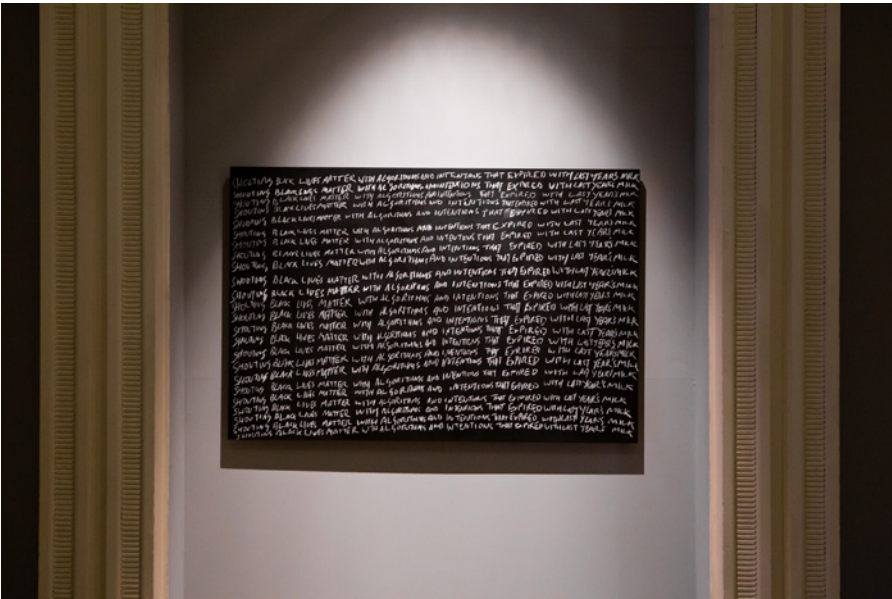 SHOUTING BLACK LIVES MATTER WITH ALGORITHMS AND INTENTIONS THAT EXPIRED WITH LAST YEARS MILK
SHOUTING BLACK LIVES MATTER WITH ALGORITHMS AND INTENTIONS THAT EXPIRED WITH LAST YEARS MILK
SHOUTING BLACK LIVES MATTER WITH ALGORITHMS AND INTENTIONS THAT EXPIRED WITH LAST YEARS MILK
SHOUTING BLACK LIVES MATTER WITH ALGORITHMS AND INTENTIONS THAT EXPIRED WITH LAST YEARS MILK
SHOUTING BLACK LIVES MATTER WITH ALGORITHMS AND INTENTIONS THAT EXPIRED WITH LAST YEARS MILK
SHOUTING BLACK LIVES MATTER WITH ALGORITHMS AND INTENTIONS THAT EXPIRED WITH LAST YEARS MILK
SHOUTING BLACK LIVES MATTER WITH ALGORITHMS AND INTENTIONS THAT EXPIRED WITH LAST YEARS MILK
SHOUTING BLACK LIVES MATTER WITH ALGORITHMS AND INTENTIONS THAT EXPIRED WITH LAST YEARS MILK
SHOUTING BLACK LIVES MATTER WITH ALGORITHMS AND INTENTIONS THAT EXPIRED WITH LAST YEARS MILK
SHOUTING BLACK LIVES MATTER WITH ALGORITHMS AND INTENTIONS THAT EXPIRED WITH LAST YEARS MILK
SHOUTING BLACK LIVES MATTER WITH ALGORITHMS AND INTENTIONS THAT EXPIRED WITH LAST YEAR'S MILK
SHOUTING BLACK LIVES MATTER WITH ALGORITHMS AND INTENTIONS THAT EXPIRED WITH LAST YEARS MILK
SHOUTING BLACK LIVES MATTER WITH ALGORITHMS AND INTENTIONS THAT EXPIRED WITH LAST YEARS MILK
SHOUTING BLACK LIVES MATTER WITH ALGORITHMS AND INTENTIONS THAT EXPIRED WITH LAST YEARS MILK
SHOUTING BLACK LIVES MATTER WITH ALGORITHMS AND INTENTIONS THAT EXPIRED WITH LAST YEARS MILK
SHOUTING BLACK LIVES MATTER WITH ALGORITHMS AND INTENTIONS THAT EXPIRED WITH LAST YEARS MILK
SHOUTING BLACK LIVES MATTER WITH ALGORITHMS AND INTENTIONS THAT EXPIRED WITH LAST YEARS MILK
SHOUTING BLACK LIVES MATTER WITH ALGORITHMS AND INTENTIONS THAT EXPIRED WITH LAST YEARS MILK
SHOUTING BLACK LIVES MATTER WITH ALGORITHMS AND INTENTIONS THAT EXPIRED WITH LAST YEAR'S MILK
SHOUTING BLACK LIVES MATTER WITH ALGORITHMS AND INTENTIONS THAT EXPIRED WITH LAST YEARS MILK
SHOUTING BLACK LIVES MATTER WITH ALGORITHMS AND INTENTIONS THAT EXPIRED WITH LAST YEAR'S MILK
SHOUTING BLACK LIVES MATTER WITH ALGORITHMS AND INTENTIONS THAT EXPIRED WITH LAST YEARS MILK
SHOUTING BLACK LIVES MATTER WITH ALGORITHMS AND INTENTIONS THAT EXPIRED WITH LAST YEARS MILK